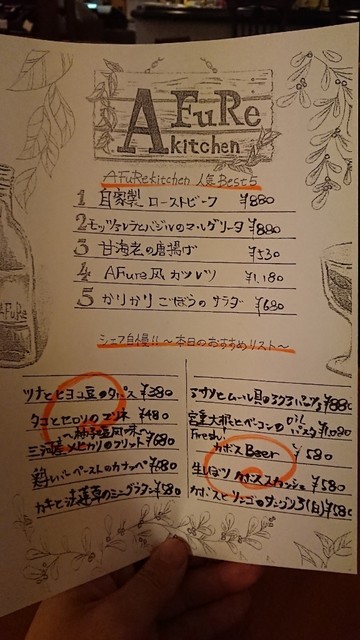 AFuRe
kitchen
AFuRe kitchen 人気 Best 5
1 自家製 ローストビーフ ¥880
2 モッツァレラとバジルのマルゲリータ ¥880
3 甘海老の唐揚げ ¥530
4 AFure風 カツレツ ¥1,180
5 かりかりごぼうのサラダ ¥680
シェフ自慢!! 〜本日のおすすめリスト〜
ツナとヒヨコ豆のタパス ¥380
タコとセロリのマリネ ¥480
〜柚子風味〜
三河産メヒカリのフリット ¥680
鶏レバーペーストのカナッペ
カキと法蓮草のミニグラタン ¥580
アサリとムール貝の
宮重大根とベーコンの オイルパスタ ¥1,080
Fresh! カボス Beer ¥580
生しぼり カボススカッシュ ¥580
カボスとリンゴのサングリア(白)
AFuRe